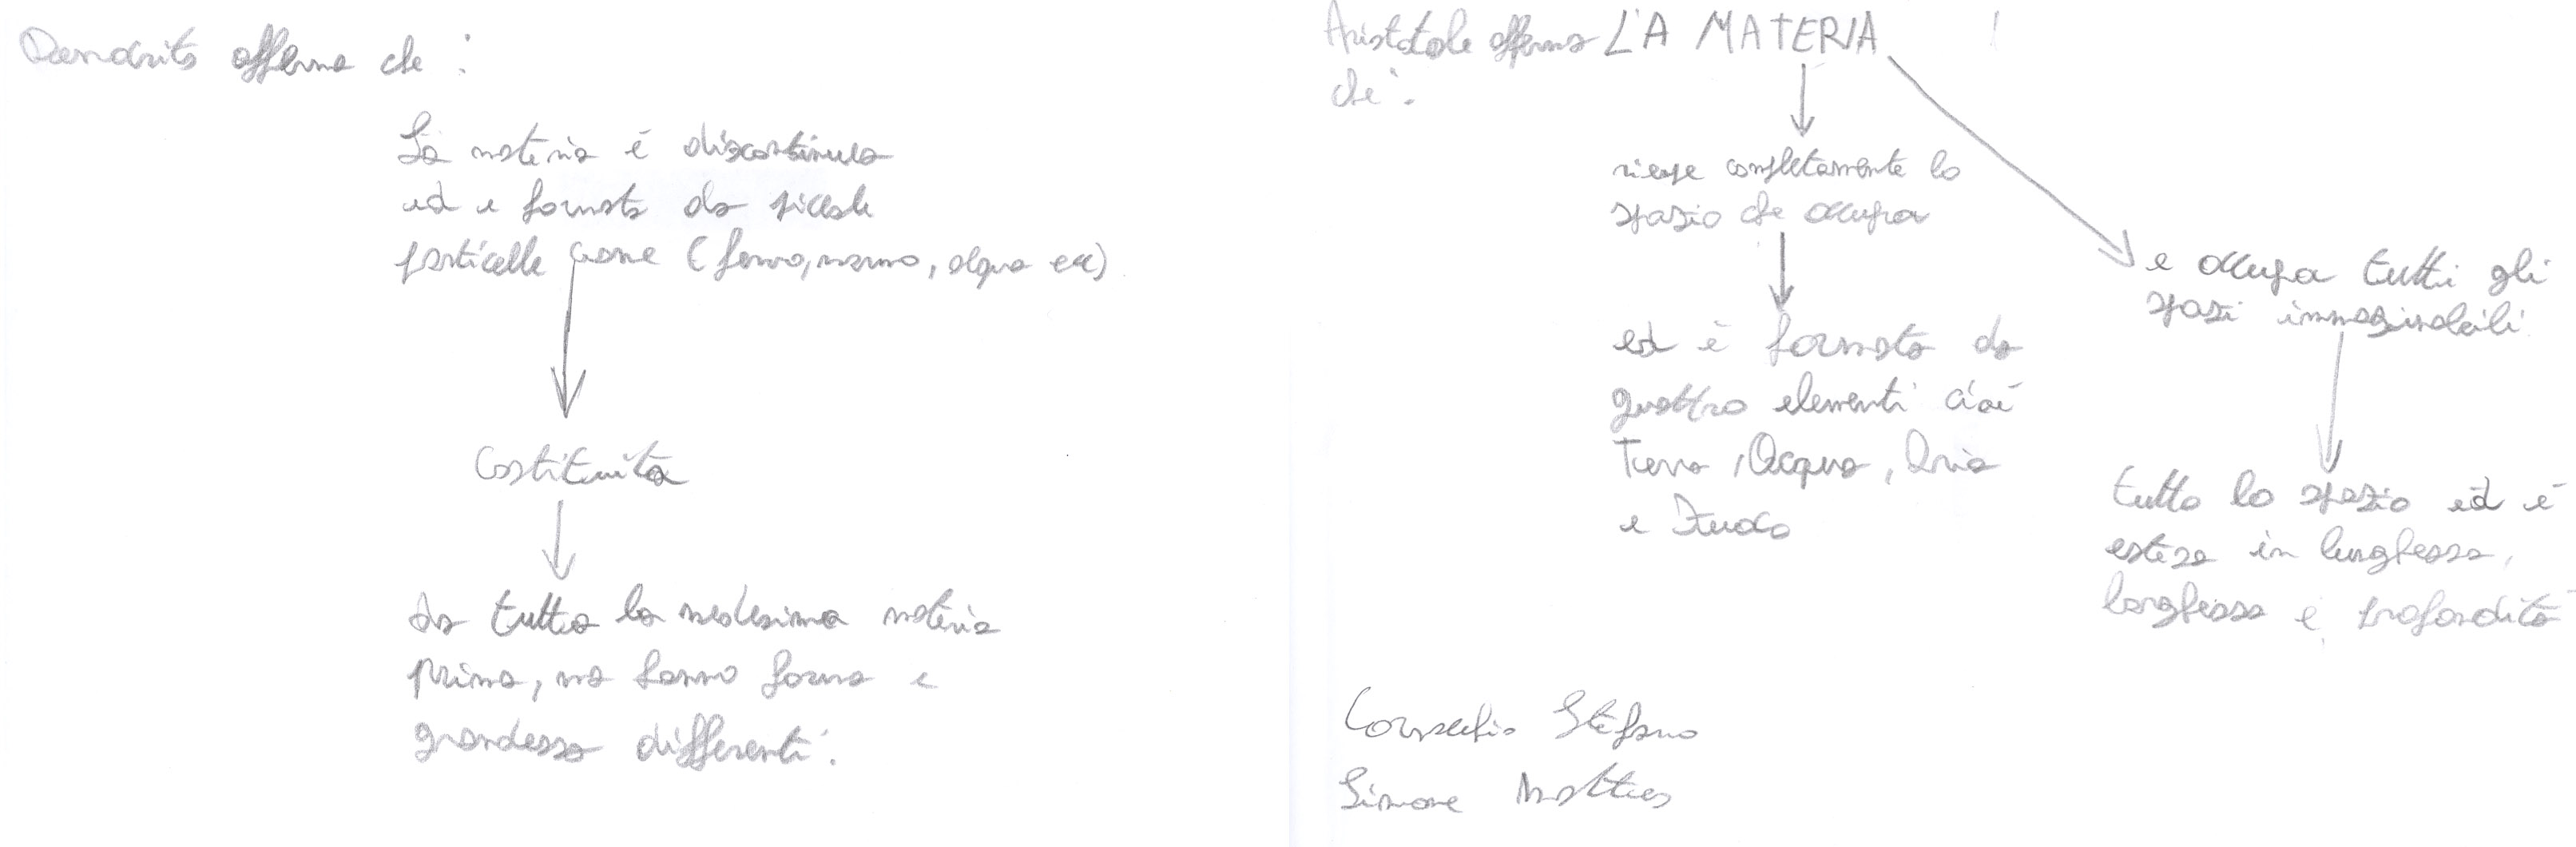 Democrito afferma che :
La materia è discontinua
ed e formata da piccole
particelle come (ferro, marmo, acqua ecc)
Costituita
da tutta la medesima materia
prima, ma hanno forma e
grandezza differenti.
Aristotele afferma L'A MATERIA
che:
riempe completamente lo
spazio che occupa
ed è formata da
quattro elementi cioè
Terra, Acqua, Aria
e Fuoco
e occupa tutti gli
spazi immaginabili
tutto lo spazio ed è
estesa in lunghezza,
larghezza e profondità
Stefano
Simone Matteo